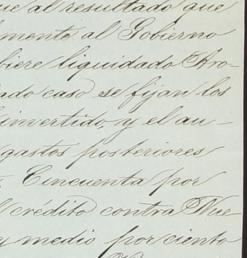 ue al resultado que
mente al Gobierno
biere liquidado Pro-
ado caso se fijan los
invertido, y el au-
gastos posteriores
Cincuenta por
l crédito contra Nue
y medio por ciento